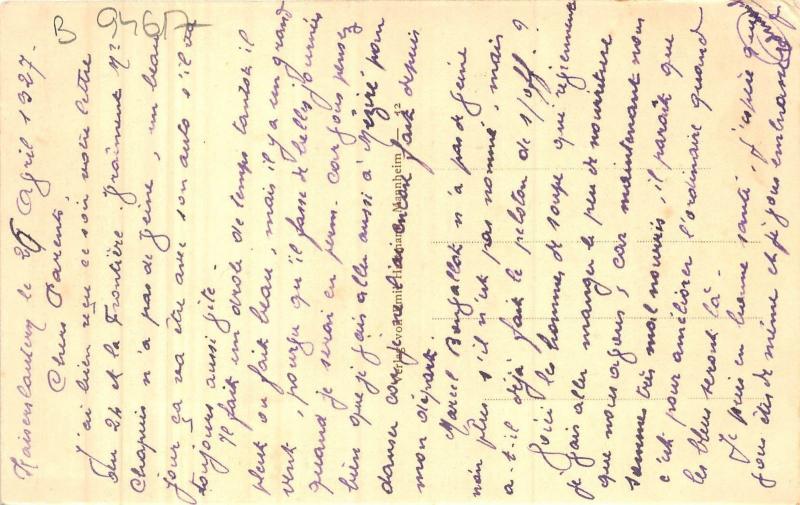 B 9467
Kaiserslautern le 25 Avril 1927.
Chers Parents
J'ai bien reçu ce soir votre lettre
du 24 et la Frontière. Vraiment Mr
Chapuis n'a pas de veine, un beau
jour ça va être avec son auto s'il est
toujours aussi gité.
Il fait un drole de temps tantôt il
pleut ou fait beau, mais il y a un grand
vent, pourvu qu'il fasse de belles journées
quand je serai en perm. car vous pensez
bien que je vais aller aussi à Méziré pour
danser car je ne l'ai encore fait depuis
mon départ.
Marcel Bougallot n'a pas de veine
non plus s'il n'est pas nommé, mais
a-t-il déjà fait le peloton de s/off. ?
Voici les hommes de soupe qui reviennent
je vais aller manger le peu de nourriture
que nous avons, car maintenant nous
sommes très mal nourris, il paraît que
c'est pour améliorer l'ordinaire quand
les bleus seront là.
Je suis en bonne santé, j'espère que
vous êtes de même et je vous embrasse
Verlag von Emil Hartmann, Mannheim
12